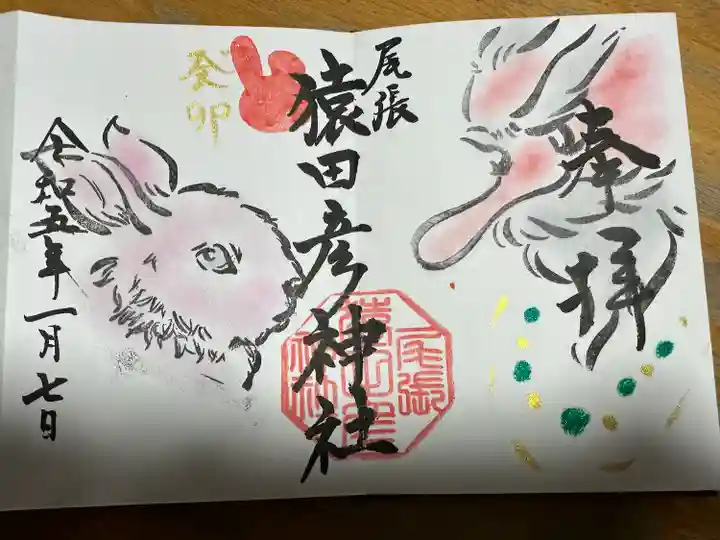 奉拝
尾張
猿田彦神社
癸卯
令和五年一月七日